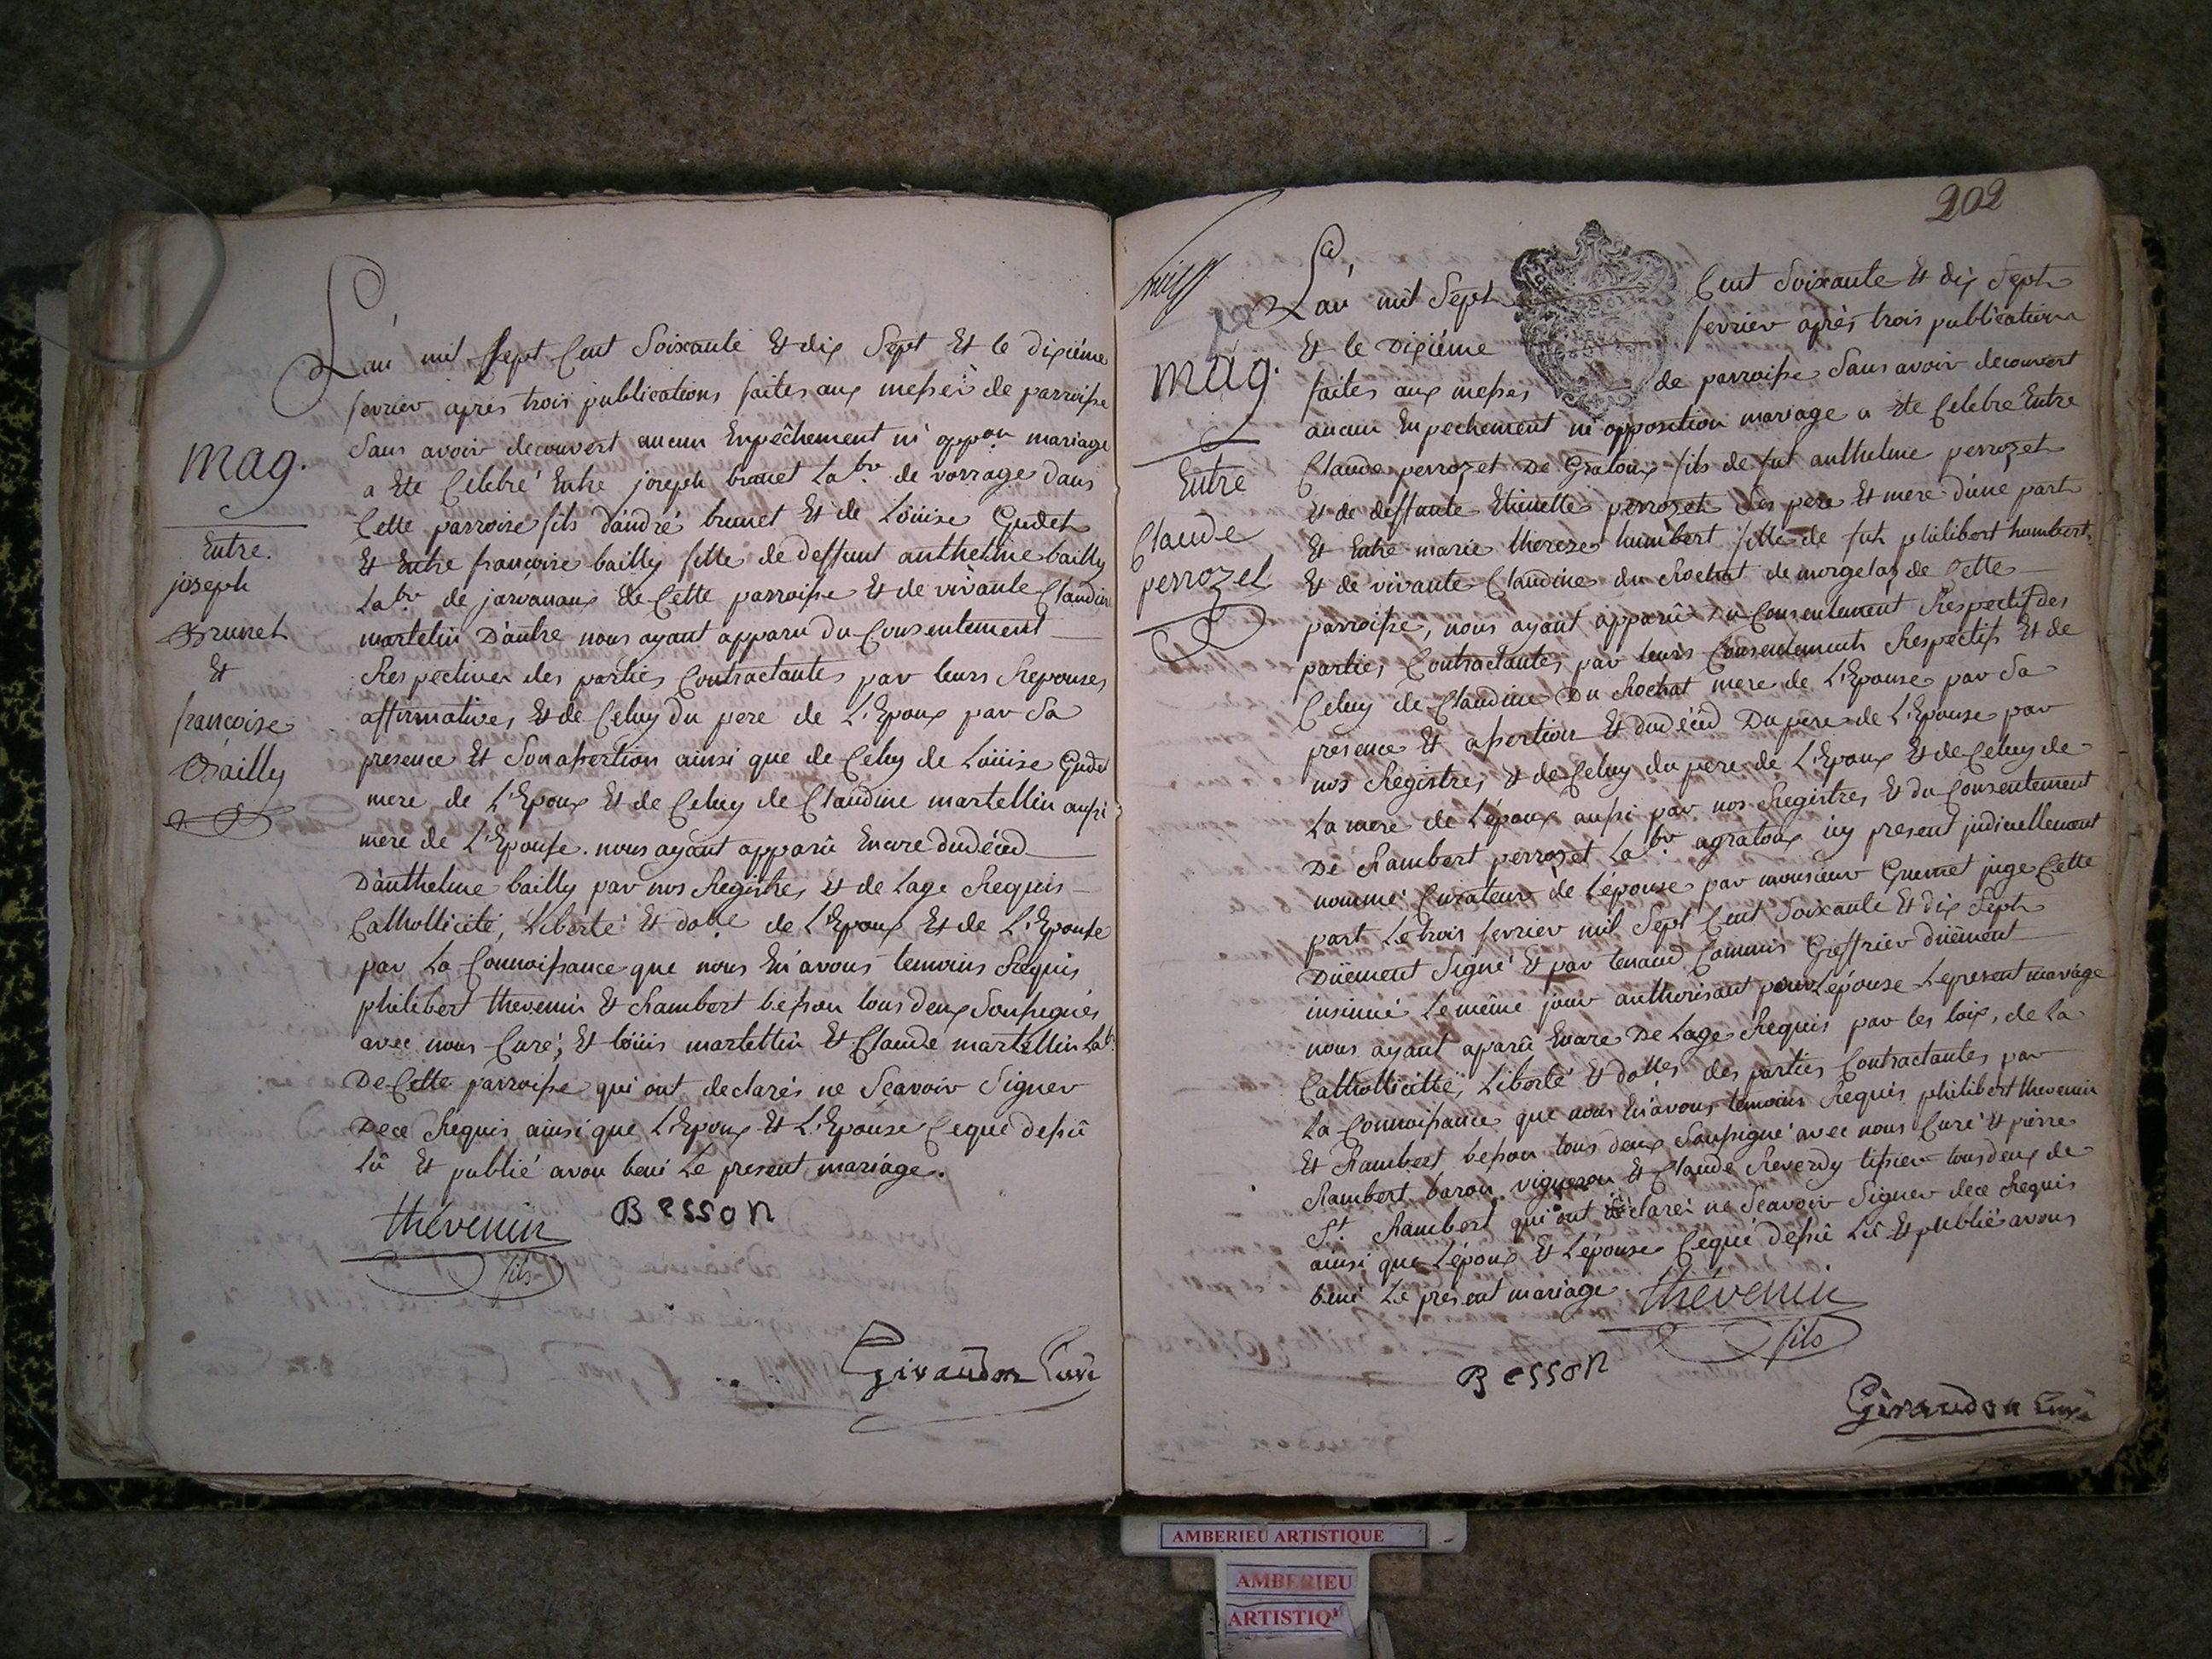 L'an mil sept Cent Soixante Et dix Sept Et le dixiéme
fevrier après trois publications faites aux messes de parroisse
Sans avoir decouvert aucun Empêchement ni oppon mariage
a Eté Celebré Entre joseph brunet Labr. de vorrage dans
Cette parroise fils d'andré brunet Et de Loüise Gudet
Et Entre françoise bailly fille de deffunt anthelme bailly
Labr. de jarvanaux de Cette parroisse Et de vivante Claudine
martelin D'autre nous ayant apparu du Consentement
Respective des parties Contractantes par leurs Reponses
affirmatives Et de Celuy du pere de L'Epoux par Sa
presence Et Son assertion ainsi que de Celuy de Loüise Gudet
mere de L'Epoux Et de Celuy de Claudine martellin aussi
mere de L'Epouse. nous ayant apparû Encore du décéd
D'anthelme bailly par nos Registres Et de Lage Requis
Catholicité, Liberté Et de L'Epoux Et de L'Epouse
par La Connoissance que nous En avons temoins Requis
philibert thevenin Et Rambert besson tous deux Soussignés
avec nous Curé, Et loüis martettin Et Claude martellin Labr.
De Cette parroisse qui ont declarés ne Scavoir Signer
De ce Requis ainsi que L'Epoux Et L'Epouse Ce que dessû
Lû Et publié avon beni Le present mariage.
thévenin Besson
fils
Giraudon Curé
mag.
Entre.
joseph
Brunet
Et
françoise
Bailly
202
L'an mil Sept Cent Soixante Et dix Sept
Et le Dixiéme fevrier après trois publications
faites aux messes de parroisse Sans avoir decouvert
aucun Empechement ni opposition mariage a ete Celebre Entre
Claude perrozet De Gratoux fils de fut anthelme perrozet
Et de deffunte Etienette perrozet Ses pere Et mere d'une part
Et Entre marie therese humbert fille de fut philibert humbert
Et de vivante Claudine du Rochat de morgelaz de Cette
parroisse, nous ayant apparû Du Consentement Respectif des
parties Contractantes par leurs Consentements Respectifs Et de
Celuy de Claudine Du Rochat mere de L'Epouse par Sa
presence Et assertion Et du décéd Du pere de L'Epouse par
nos Registres Et de Celuy du pere de L'Epoux Et de Celuy de
La mere de L'époux aussi par nos Registres Et du Consentement
De Rambert perrozet Labr. agratoux icy present judiciellement
nommé Curateur de L'épouse par monsieur juge Cette
part Le trois fevrier mil Sept Cent Soixante Et dix Sept
Düement Signé Et par tenaud Commis Greffrier düement
insinué Le même jour authorisant pour L'épouse Le present mariage
nous ayant aparû Encore De Lage Requis par les loix, de La
Catholicitté, Liberté Et des parties Contractantes par
La Connoissance que nous En avons temoins Requis philibert thevenin
Et Rambert besson tous deux Soussigné avec nous Curé Et pierre
Rambert baron vigneron Et Claude Reverdy tissier tous deux de
St. Rambert qui ont déclarés ne Scavoir Signer de ce Requis
ainsi que L'époux Et L'épouse Ce que dessû Lû Et publié avons
beni Le présent mariage. thévenin
fils
Besson
Giraudon Curé
mag.
Entre
Claude
perrozet
AMBERIEU ARTISTIQUE
AMBERIEU
ARTISTIQ